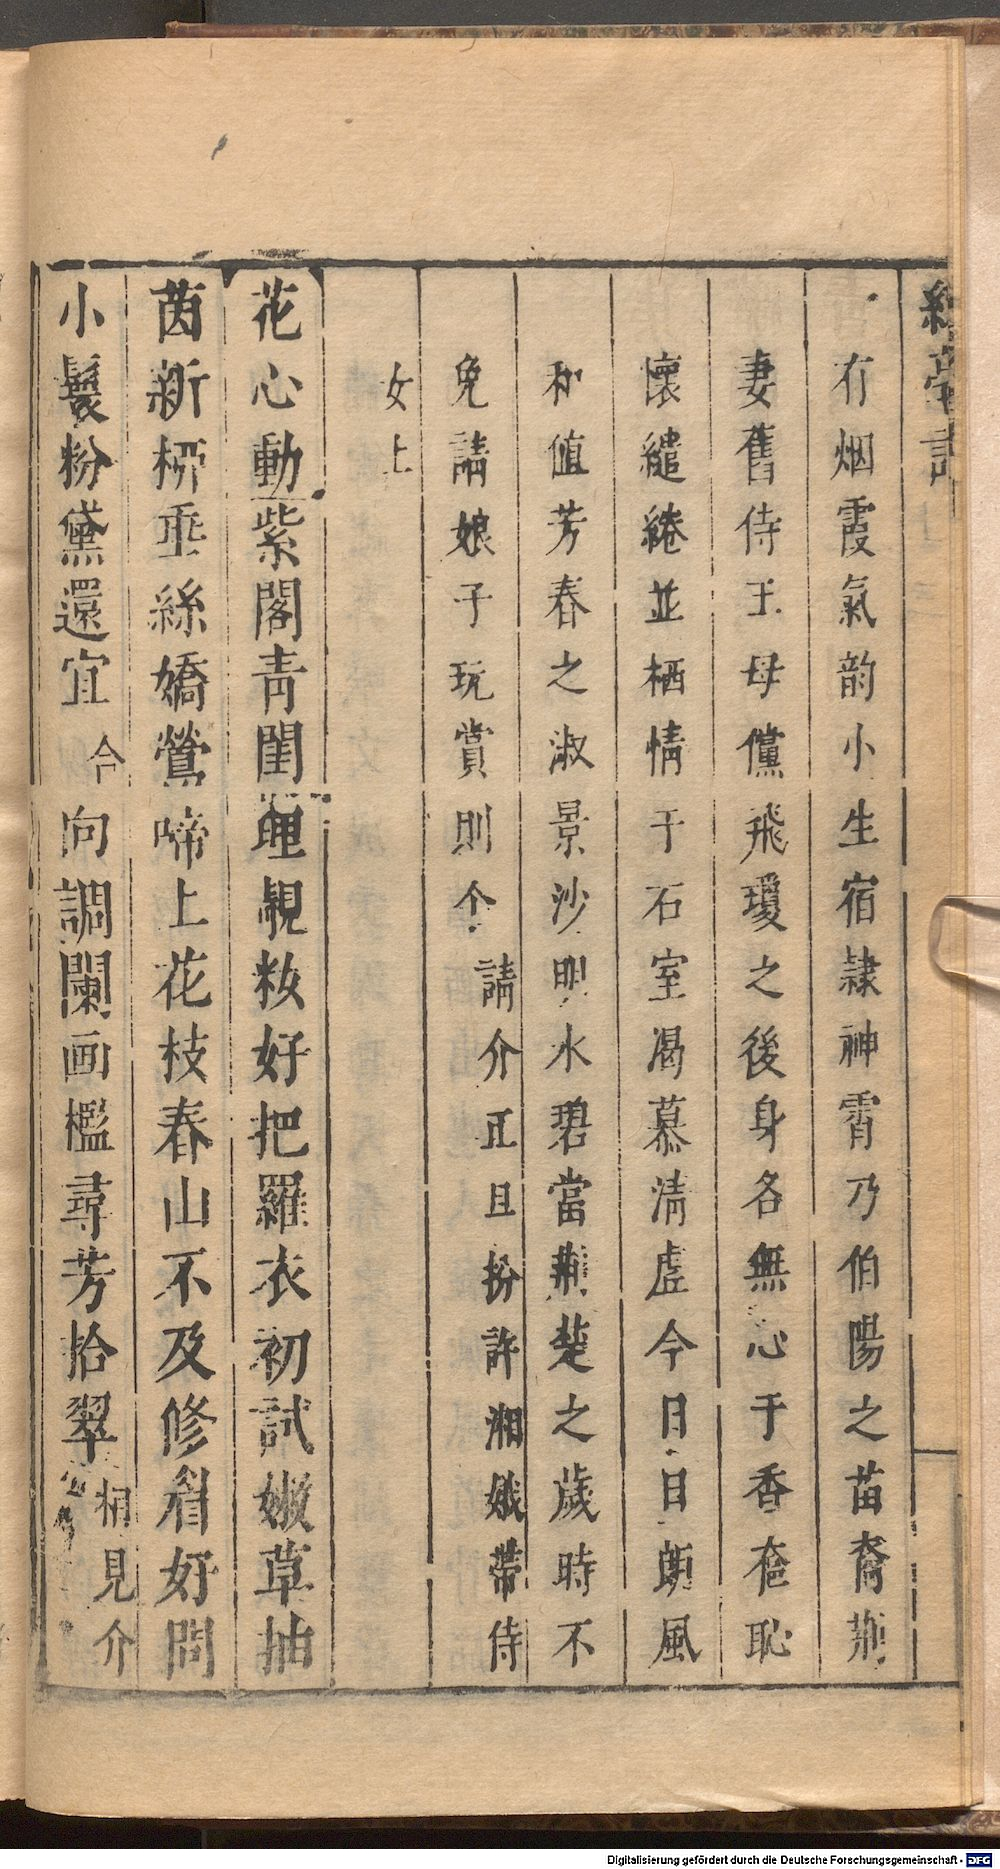 冇烟霞氣韵小生宿隷神霄乃伯陽之苗裔荊
妻舊侍王母儻飛瓊之後身各無心于香奩恥
懷繾綣並栖情于石室渴慕淸虛今日日朗風
和值芳春之淑景沙明水碧當荊楚之歲時不
免請娘子玩賞則个請介正旦扮許湘娥帶侍
女上
花心動紫閣靑閨理靚粧好把羅衣初試嫩草抽
茵新柳垂絲嬌鶯啼上花枝春山不及修眉好問
小鬟粉黛還宜合向調闌画檻尋芳拾翠相見介
Digitalisierung gefördert durch die Deutsche Forschungsgemeinschaft - DFG